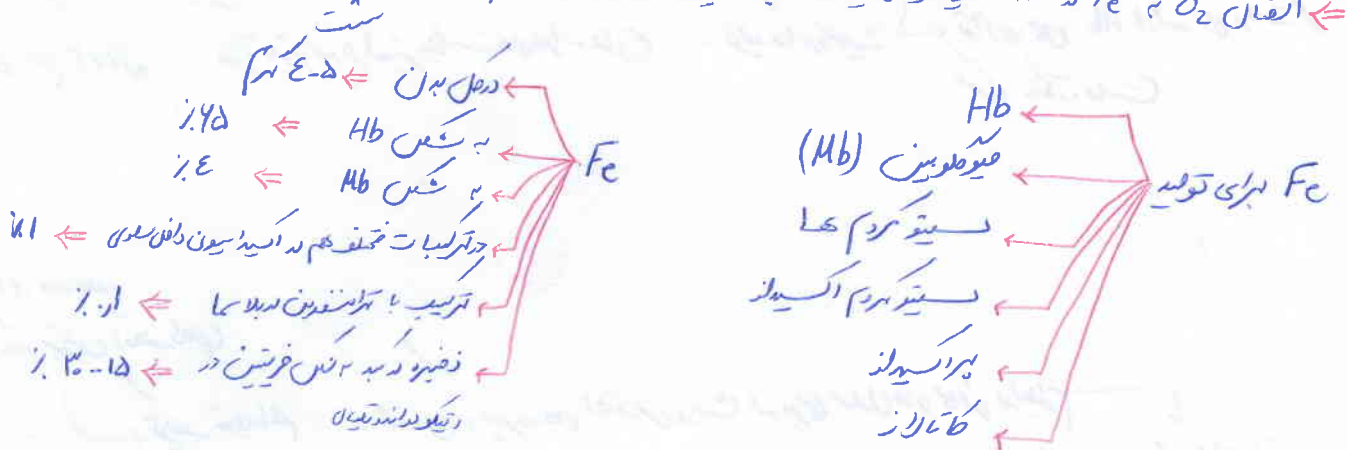 ⇐ اتصال O2 به
ست
Fe برای تولید
Hb
میوگلوبین (Mb)
سیتوکروم ها
سیتوکروم اکسیداز
پراکسیداز
کاتالاز
Fe
در کل بدن ⇐ ۵-٤ گرم
به شکل Hb ⇐ ۶۵٪
به شکل Mb ⇐ ٤٪
در ترکیبات مختلف هم در اکسیداسیون داخل سلولی ⇐ ۱٪
ترکیب با ترانسفرین در پلاسما ⇐ ۰.۱٪
ذخیره در کبد به شکل فریتین در ⇐ ۱۵-۳۰٪
رتیکولواندوتلیال